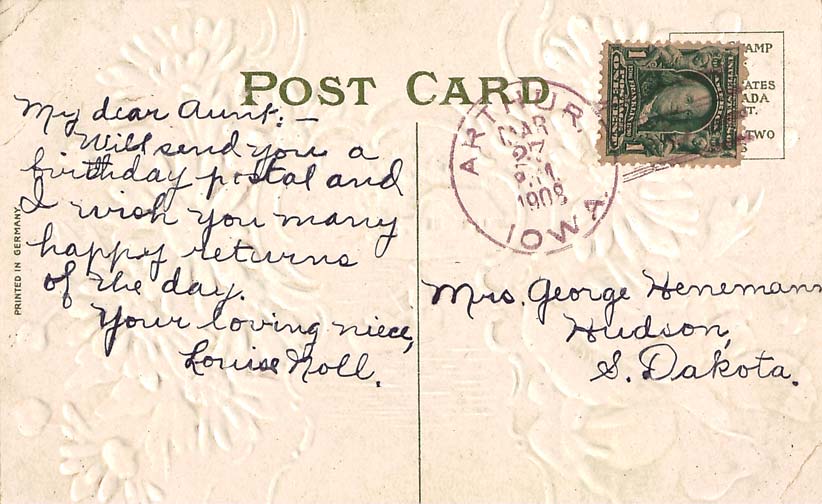 POST CARD
My dear Aunt; —
Will send you a
birthday postal and
I wish you many
happy returns
of the day.
Your loving niece,
Louise Noll.
PRINTED IN GERMANY
ARTHUR
MAR
27
1908
IOWA.
1
AMP
ATES
ADA
ST.
TWO
Mrs. George Henemann
Hudson,
S. Dakota.